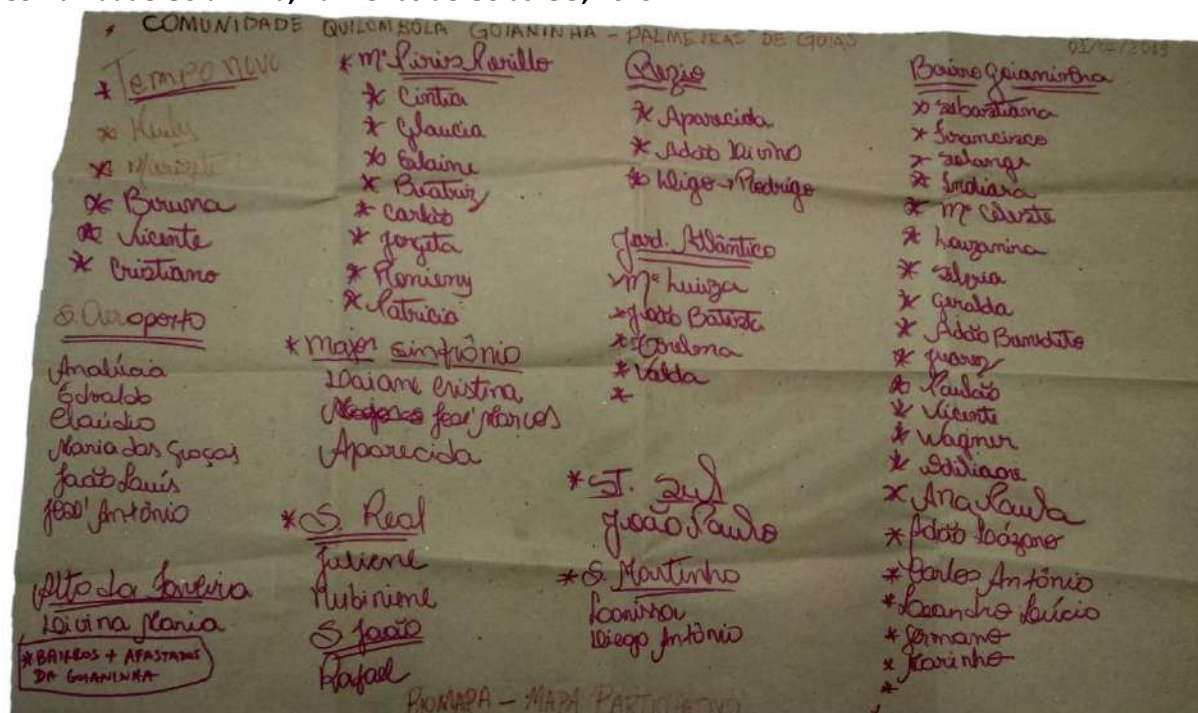 COMUNIDADE QUILOMBOLA GOIANINHA - PALMEIRAS DE GOIÁS
01/02/2019
* Tempo novo
* Bruna
* Vicente
* Cristiano
S. Aeroporto
Analúcia
Edvaldo
Claúdio
Maria das Graças
João Luís
José Antônio
Alto da
Divina Maria
* BAIRROS + AFASTADOS
DA GOIANINHA
* Mª Pires Perillo
* Cintia
* Glaucia
* Elaine
* Beatriz
* Carlão
* Jorgeta
* Ronieny
* Patricia
* Major Sinfrônio
Daiane Cristina
José Marcos
Aparecida
* S. Real
Juliene
Rubiniene
S. João
Rafael
* Aparecida
* Adão Divino
* Digo → Rodrigo
Jard. Atlântico
Mª Luiza
* João Batista
* Valda
*
* ST. Sul
João Paulo
* S. Martinho
Larissa
Diego Antônio
Bairro Goianinha
* Sebastiana
* Francisco
* Solange
* Indiara
* Mª Celeste
* Geralda
* Adão Benedito
* Juarez
* Paulão
* Vicente
* Wagner
* Ana Paula
* Adão Lázaro
* Carlos Antônio
* Leandro Lúcio
* Germano
* Marinho
*
BIOMAPA - MAPA PARTICIPATIVO